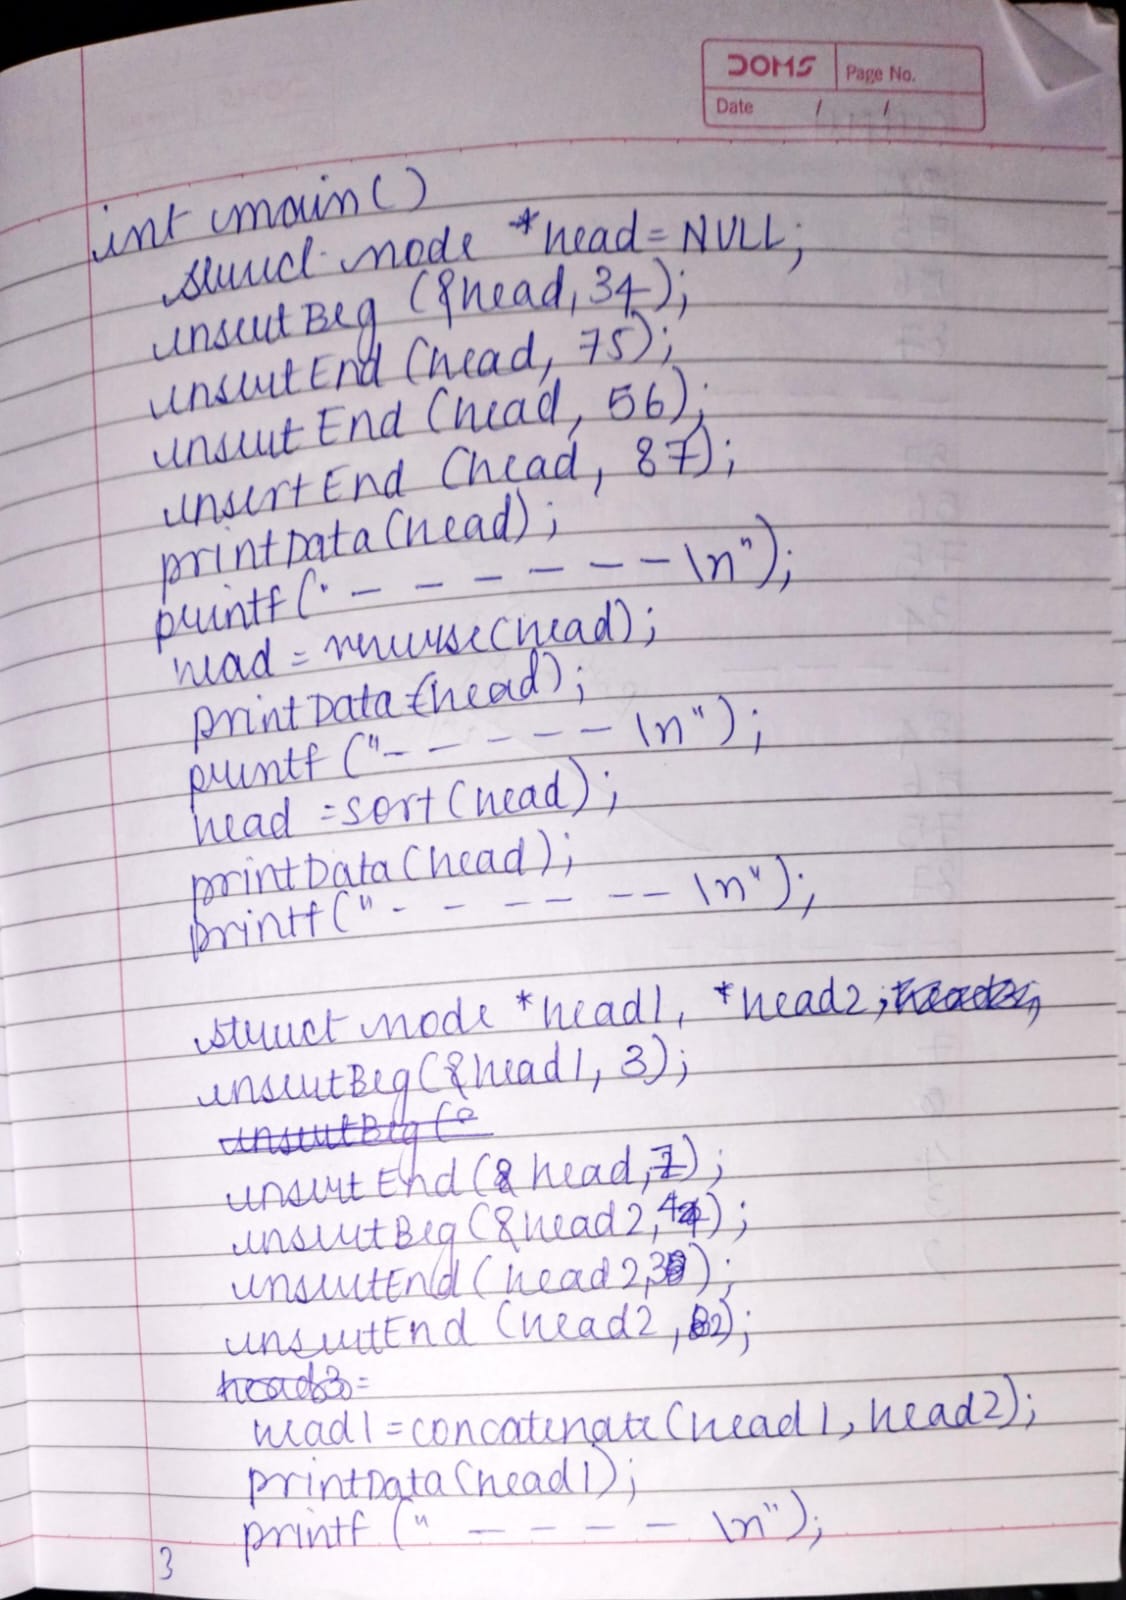 DOMS Page No.
Date / /
int main()
struct node *head = NULL;
insertBeg (&head, 34);
insertEnd (head, 75);
insertEnd (head, 56);
insertEnd (head, 87);
printData (head);
printf (" - - - - - - \n");
head = reverse(head);
printData (head);
printf ("- - - - - \n");
head = sort (head);
printData (head);
printf (" - - - - - - \n");
struct node *head1, *head2;
insertBeg (&head1, 3);
insertBeg (&
insertEnd (& head, 7);
insertBeg (&head2, 4);
insertEnd (head2, 3);
insertEnd (head2, 2);
head3 =
head1 = concatenate (head1, head2);
printData (head1);
printf (" - - - - \n");
}